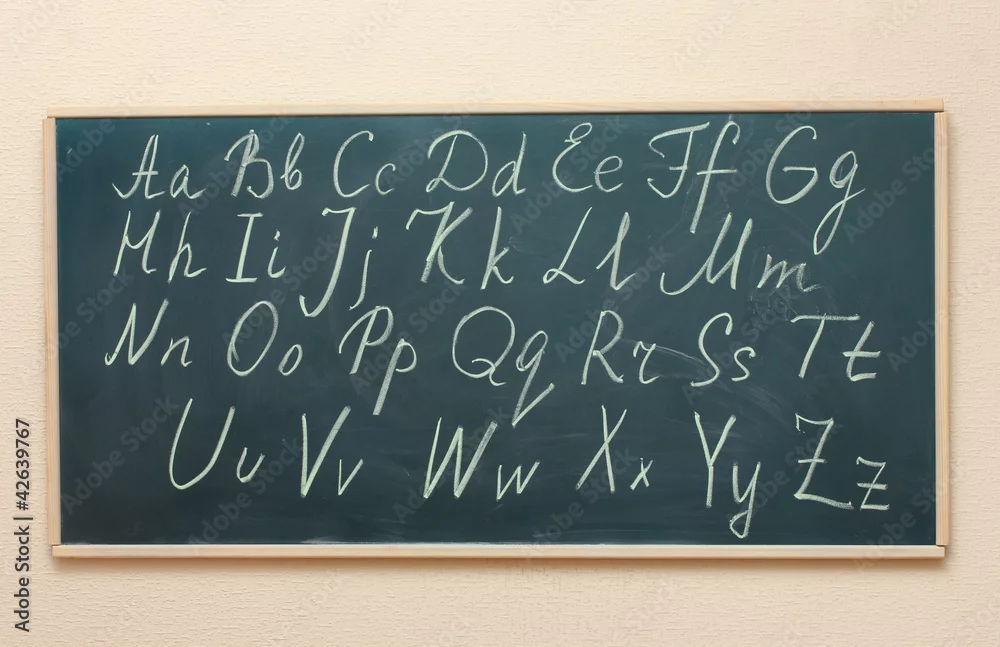 Aa Bb Cc Dd Ee Ff Gg
Hh Ii Jj Kk Ll Mm
Nn Oo Pp Qq Rr Ss Tt
Uu Vv Ww Xx Yy Zz
Adobe Stock | #42639767